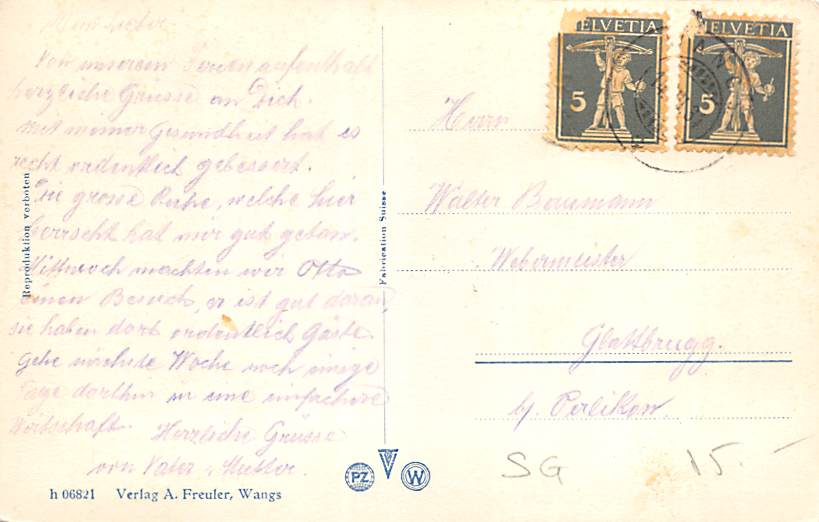 Mein Lieber
Von unserem Ferienaufenthalt
herzliche Grüsse an Dich.
Mit meiner Gesundheit hat es
recht ordentlich gebessert.
Die grosse Ruhe, welche hier
herrscht hat mir gut getan.
Mittwoch machten wir Otto
einen Besuch, er ist gut daran
sie haben dort ordentlich Gäste.
Gehe nächste Woche noch einige
Tage dorthin in eine einfachere
Wirtschaft. Herzliche Grüsse
von Vater u. Mutter.
Reproduktion verboten
h 06821 Verlag A. Freuler, Wangs
Fabrication Suisse
PZ W
HELVETIA
5
HELVETIA
5
Herrn
Walter Baumann
Webermeister
Glattbrugg.
b/. Oerlikon.
SG 15.-